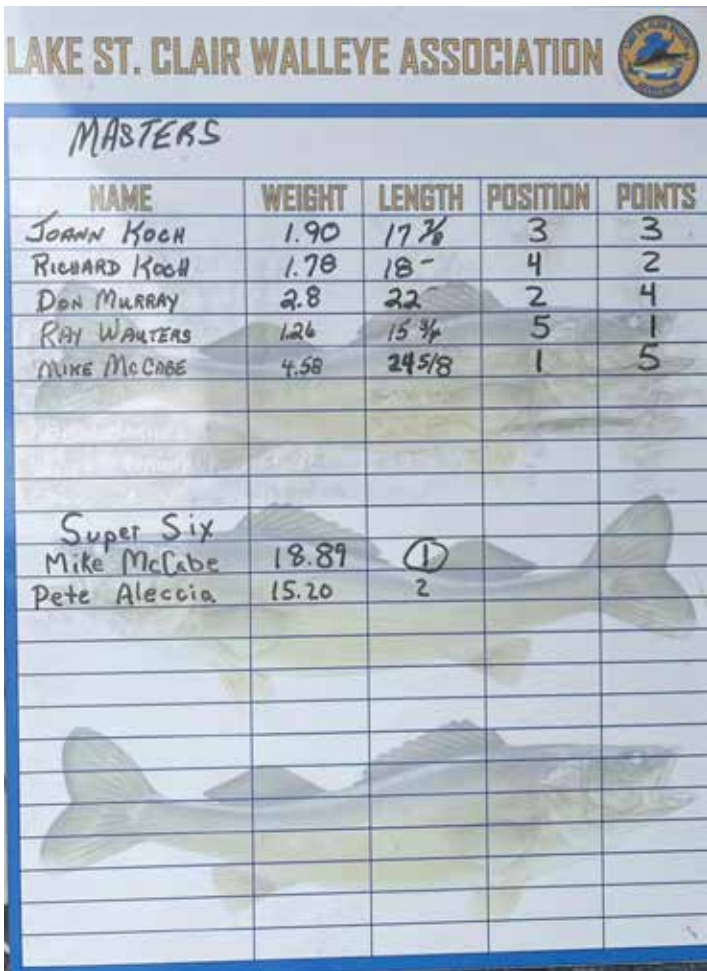 LAKE ST. CLAIR WALLEYE ASSOCIATION
MASTERS
NAME WEIGHT LENGTH POSITION POINTS
JOANN KOCH 1.90 17 7/8 3 3
RICHARD KOCH 1.78 18- 4 2
DON MURRAY 2.8 22 2 4
RAY WALTERS 1.26 15 3/4 5 1
MIKE McCABE 4.58 24 5/8 1 5
Super Six
Mike McCabe 18.89 1
Pete Aleccia 15.20 2